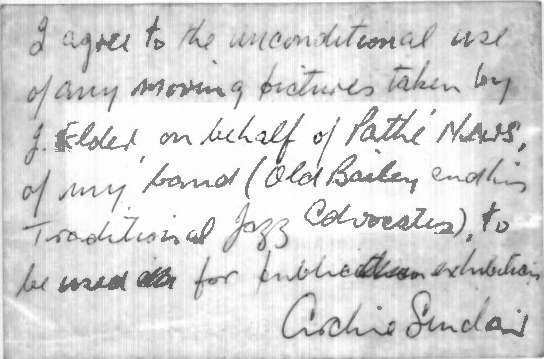 I agree to the unconditional use
of any moving pictures taken by
J. Elder, on behalf of Pathé News,
of my band (Old Bailey and his
Traditional Jazz Advocates), to
be used for public exhibition
Archie Sinclair